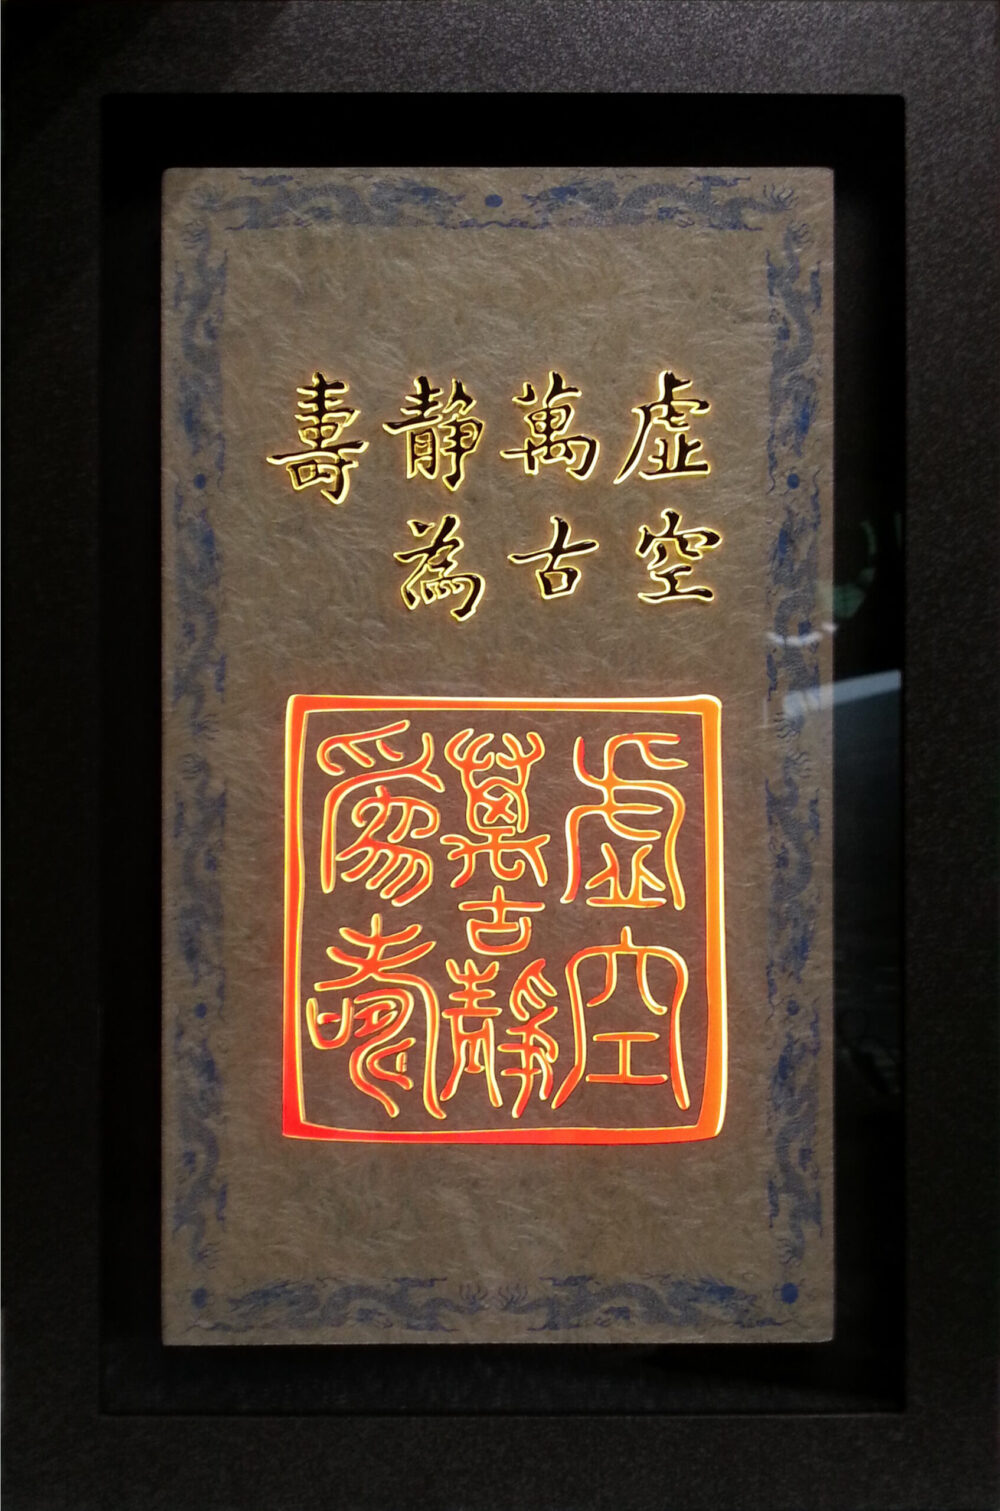 虛空
萬古
靜為
壽
虛空
萬古靜
為壽